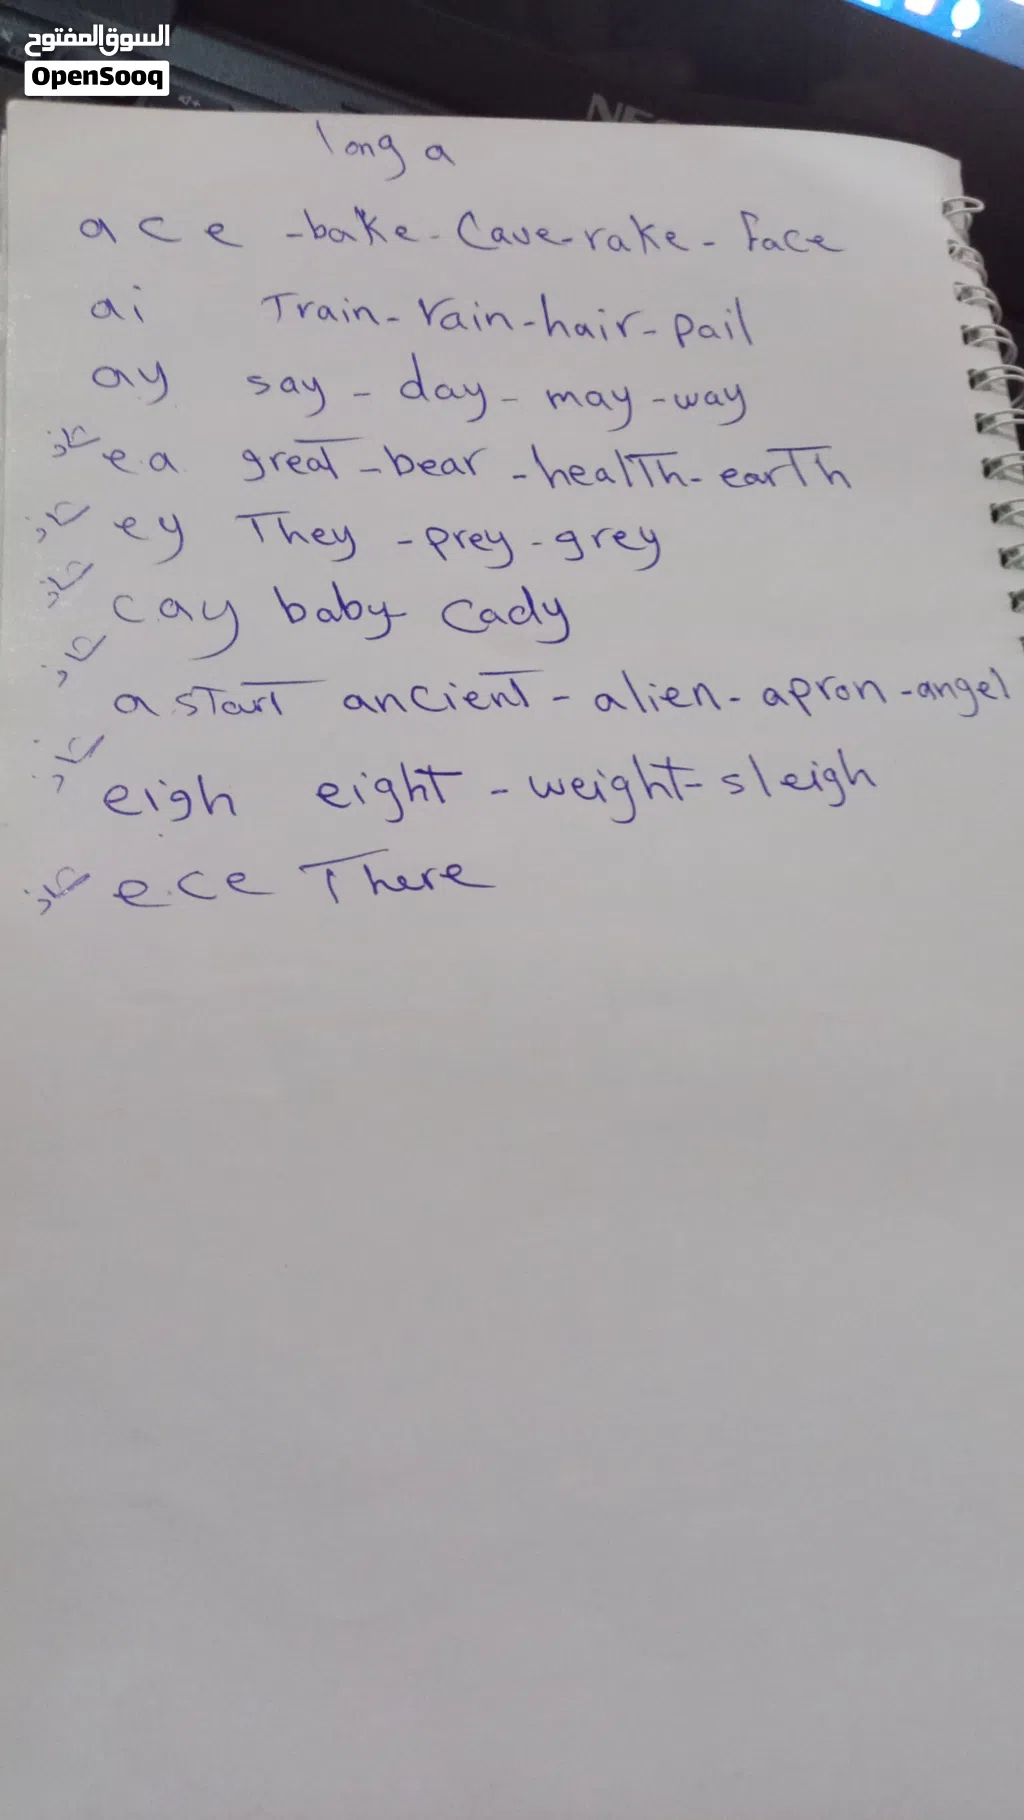 السوق المفتوح
OpenSooq
long a
a c e - bake - Cave - rake - face
ai Train - rain - hair - pail
ay say - day - may - way
e.a great - bear - health - earth
ey They - prey - grey
c.a y baby - Cady
a start ancient - alien - apron - angel
eigh eight - weight - sleigh
e.c e There